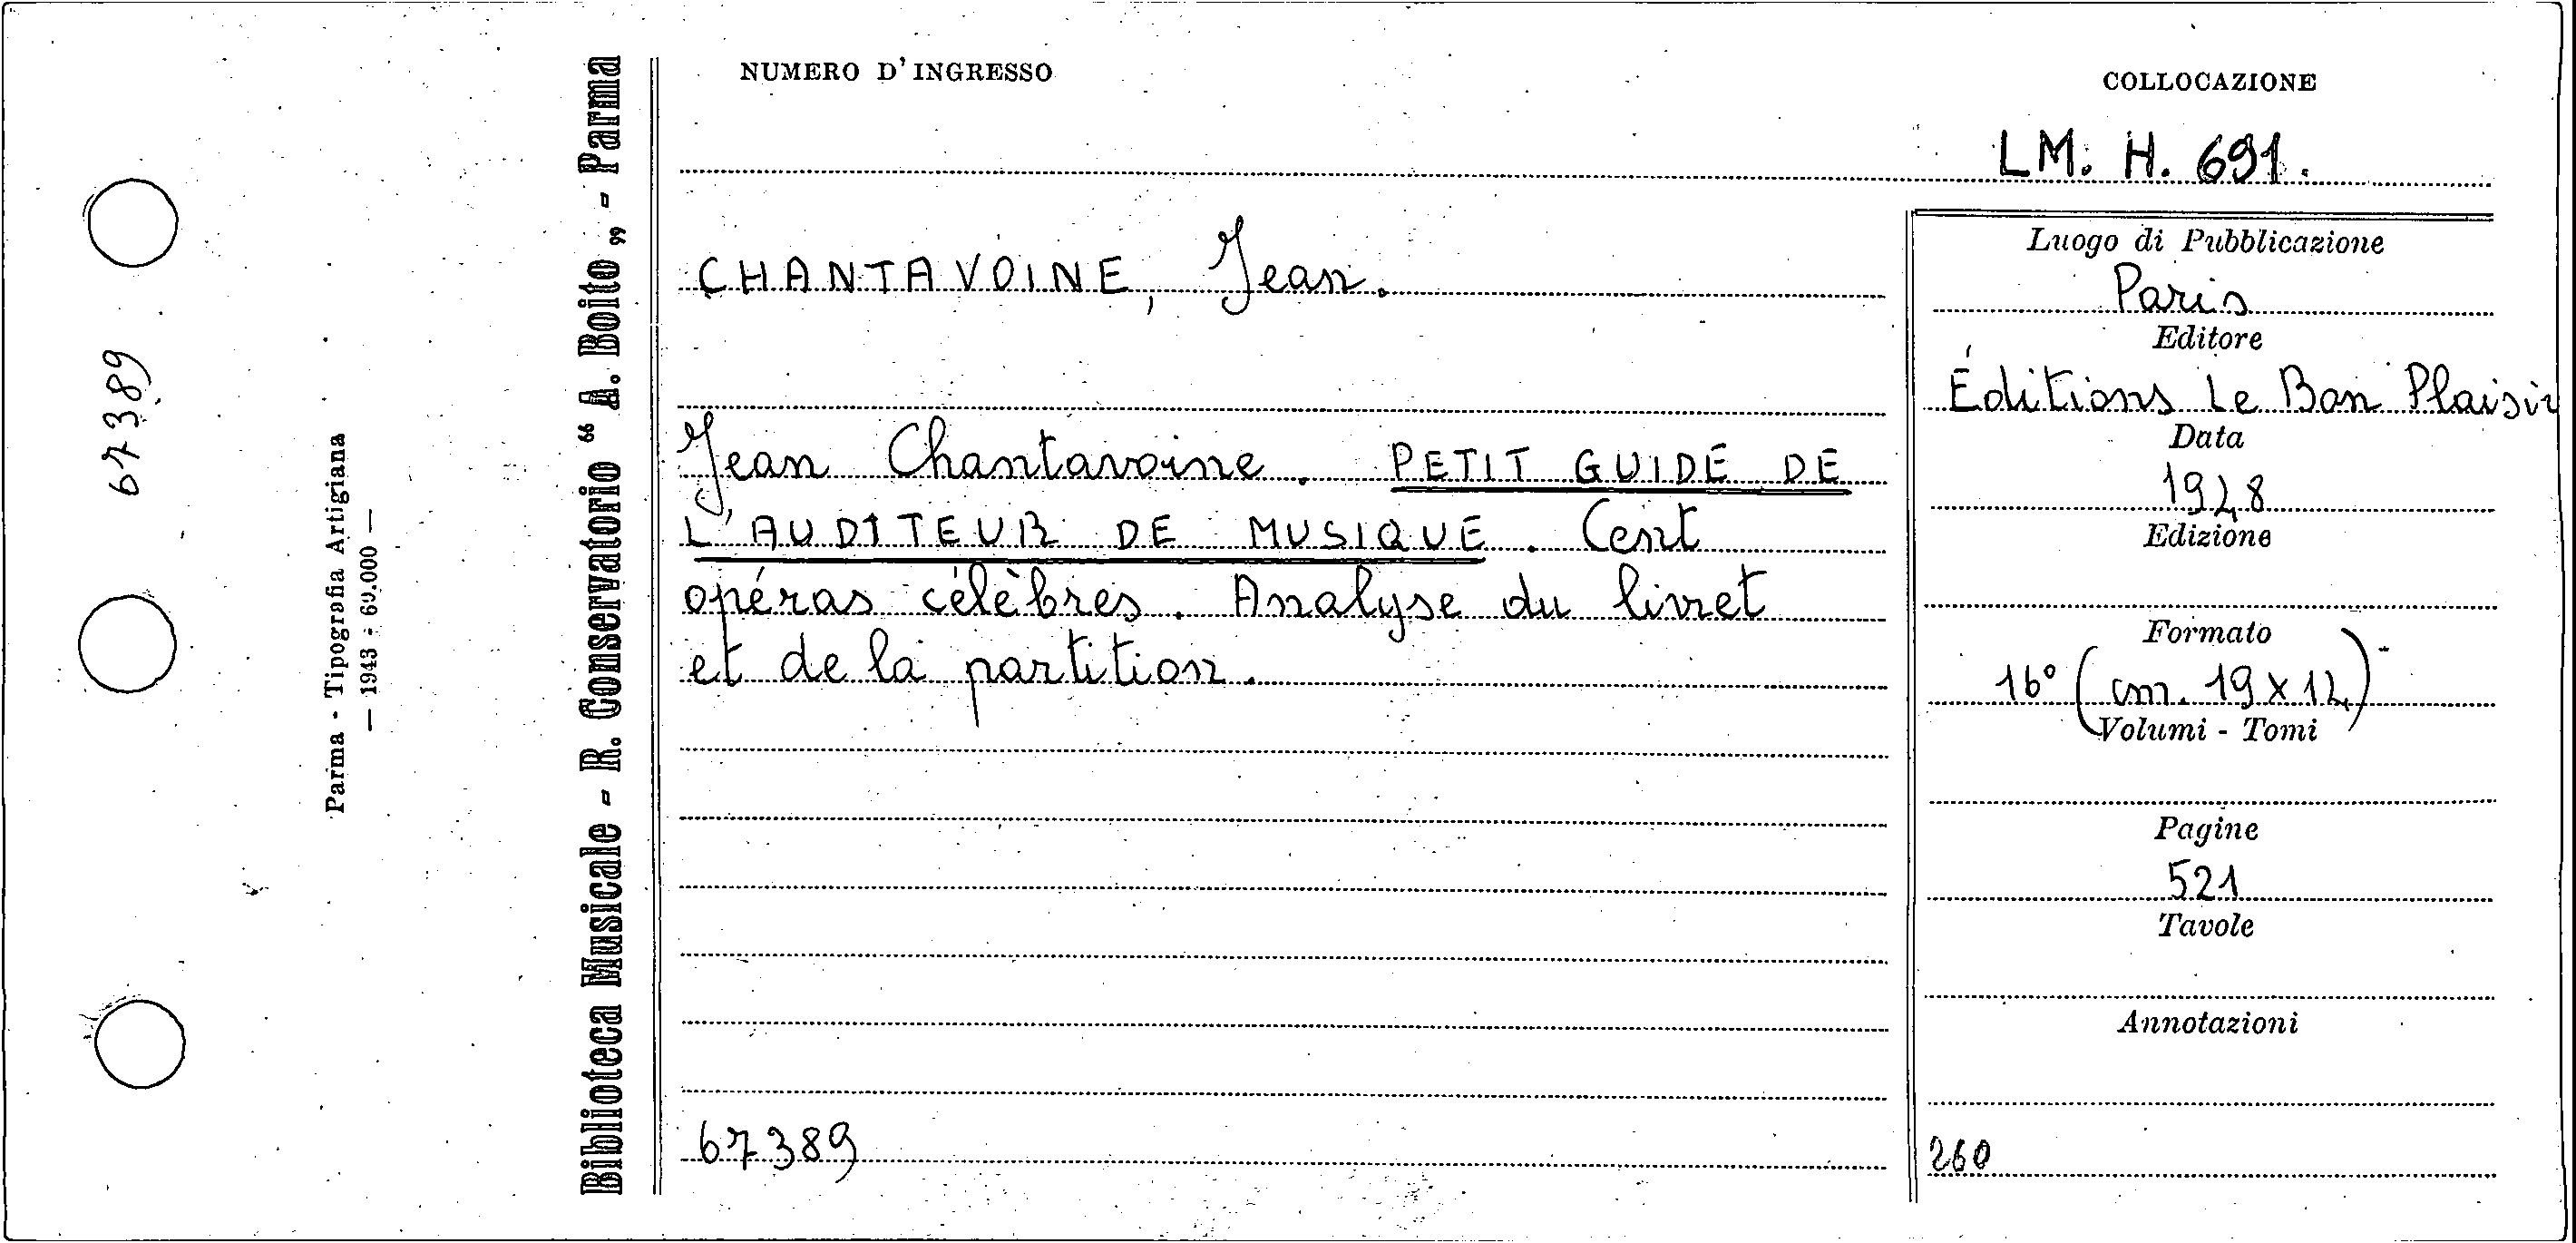 NUMERO D'INGRESSO
COLLOCAZIONE
LM. H. 691.
CHANTAVOINE, Jean.
Jean Chantavoine. PETIT GUIDE DE
L'AUDITEUR DE MUSIQUE. Cent
opéras célèbres. Analyse du livret
et de la partition.
67389
Luogo di Pubblicazione
Paris
Editore
Éditions Le Bon Plaisir
Data
1948
Edizione
Formato
16° (cm. 19 x 14)
Volumi - Tomi
Pagine
521
Tavole
Annotazioni
260
Biblioteca Musicale - R. Conservatorio “ A. Boito „ - Parma
Parma - Tipografia Artigiana
— 1943 - 60.000 —
67389